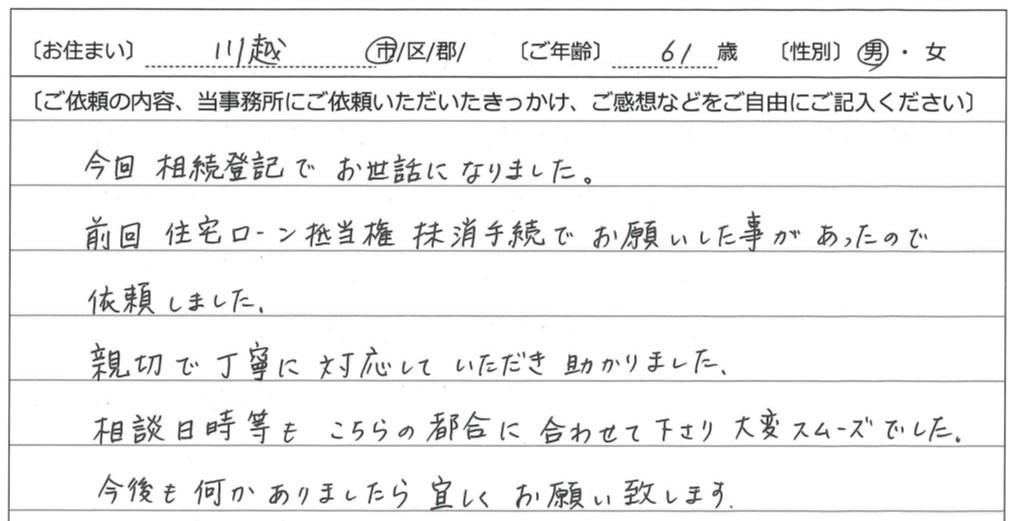 〔お住まい〕 川越 市/区/郡/ 〔ご年齢〕 61 歳 〔性別〕 男 ・ 女
〔ご依頼の内容、当事務所にご依頼いただいたきっかけ、ご感想などをご自由にご記入ください〕
今回 相続登記で お世話になりました。
前回 住宅ローン抵当権 抹消手続で お願いした事が あったので
依頼しました。
親切で丁寧に 対応して いただき 助かりました、
相談日時等も こちらの都合に 合わせて下さり 大変スムーズでした。
今後も何かありましたら 宜しく お願い致します.